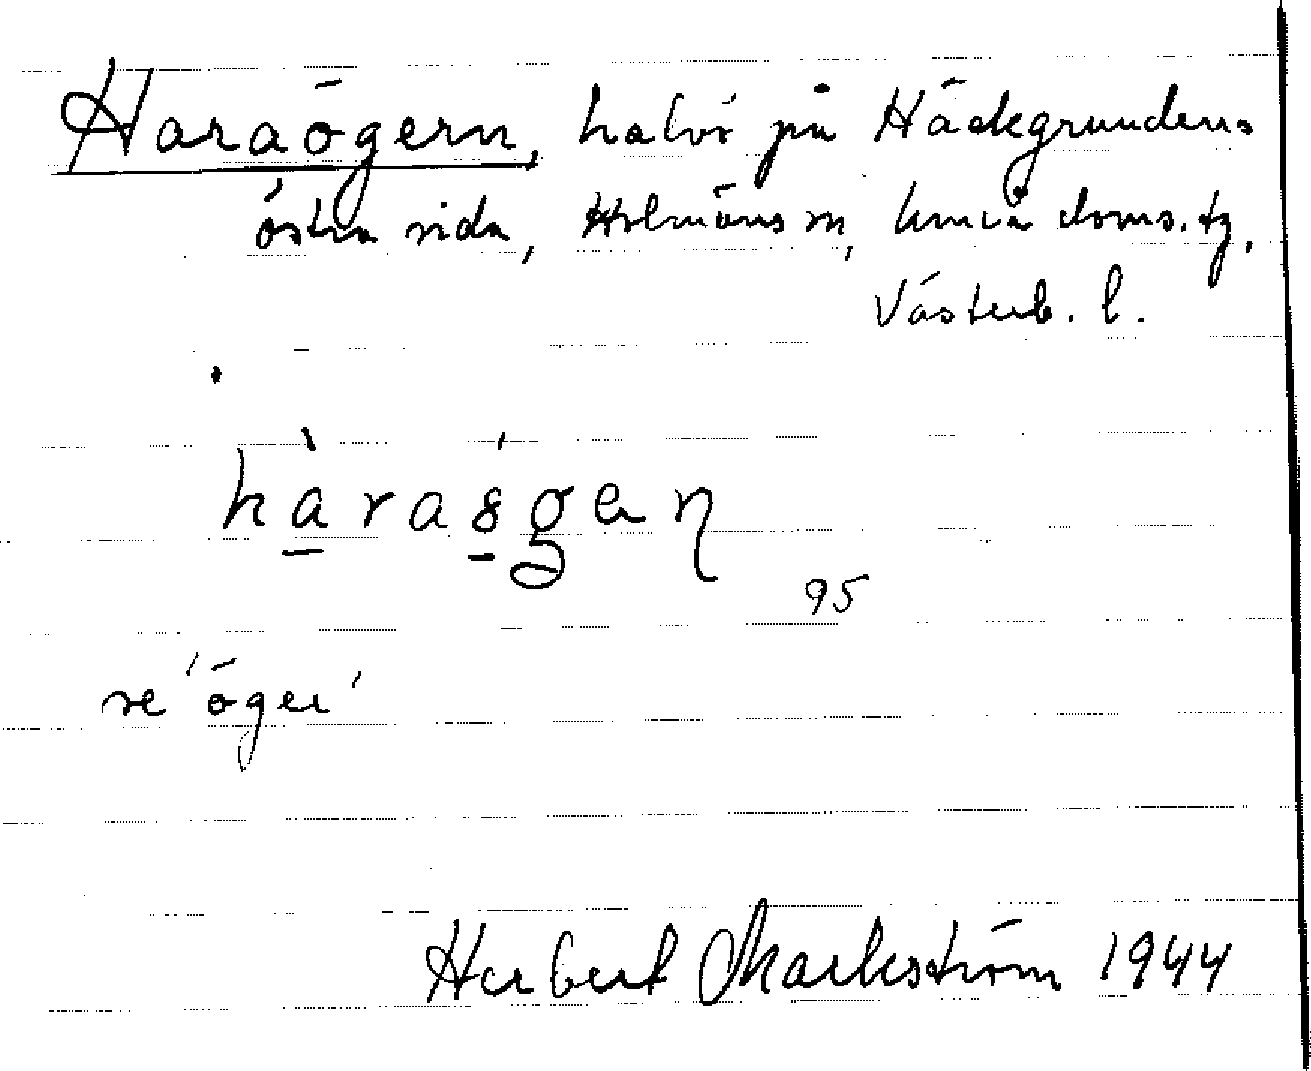 Haraögern, halvö på Häckgrundens
östra sida, Holmöns sn, Umeå doms. tg,
Västerb. l.
95
se 'öger'
Herbert Markström 1944